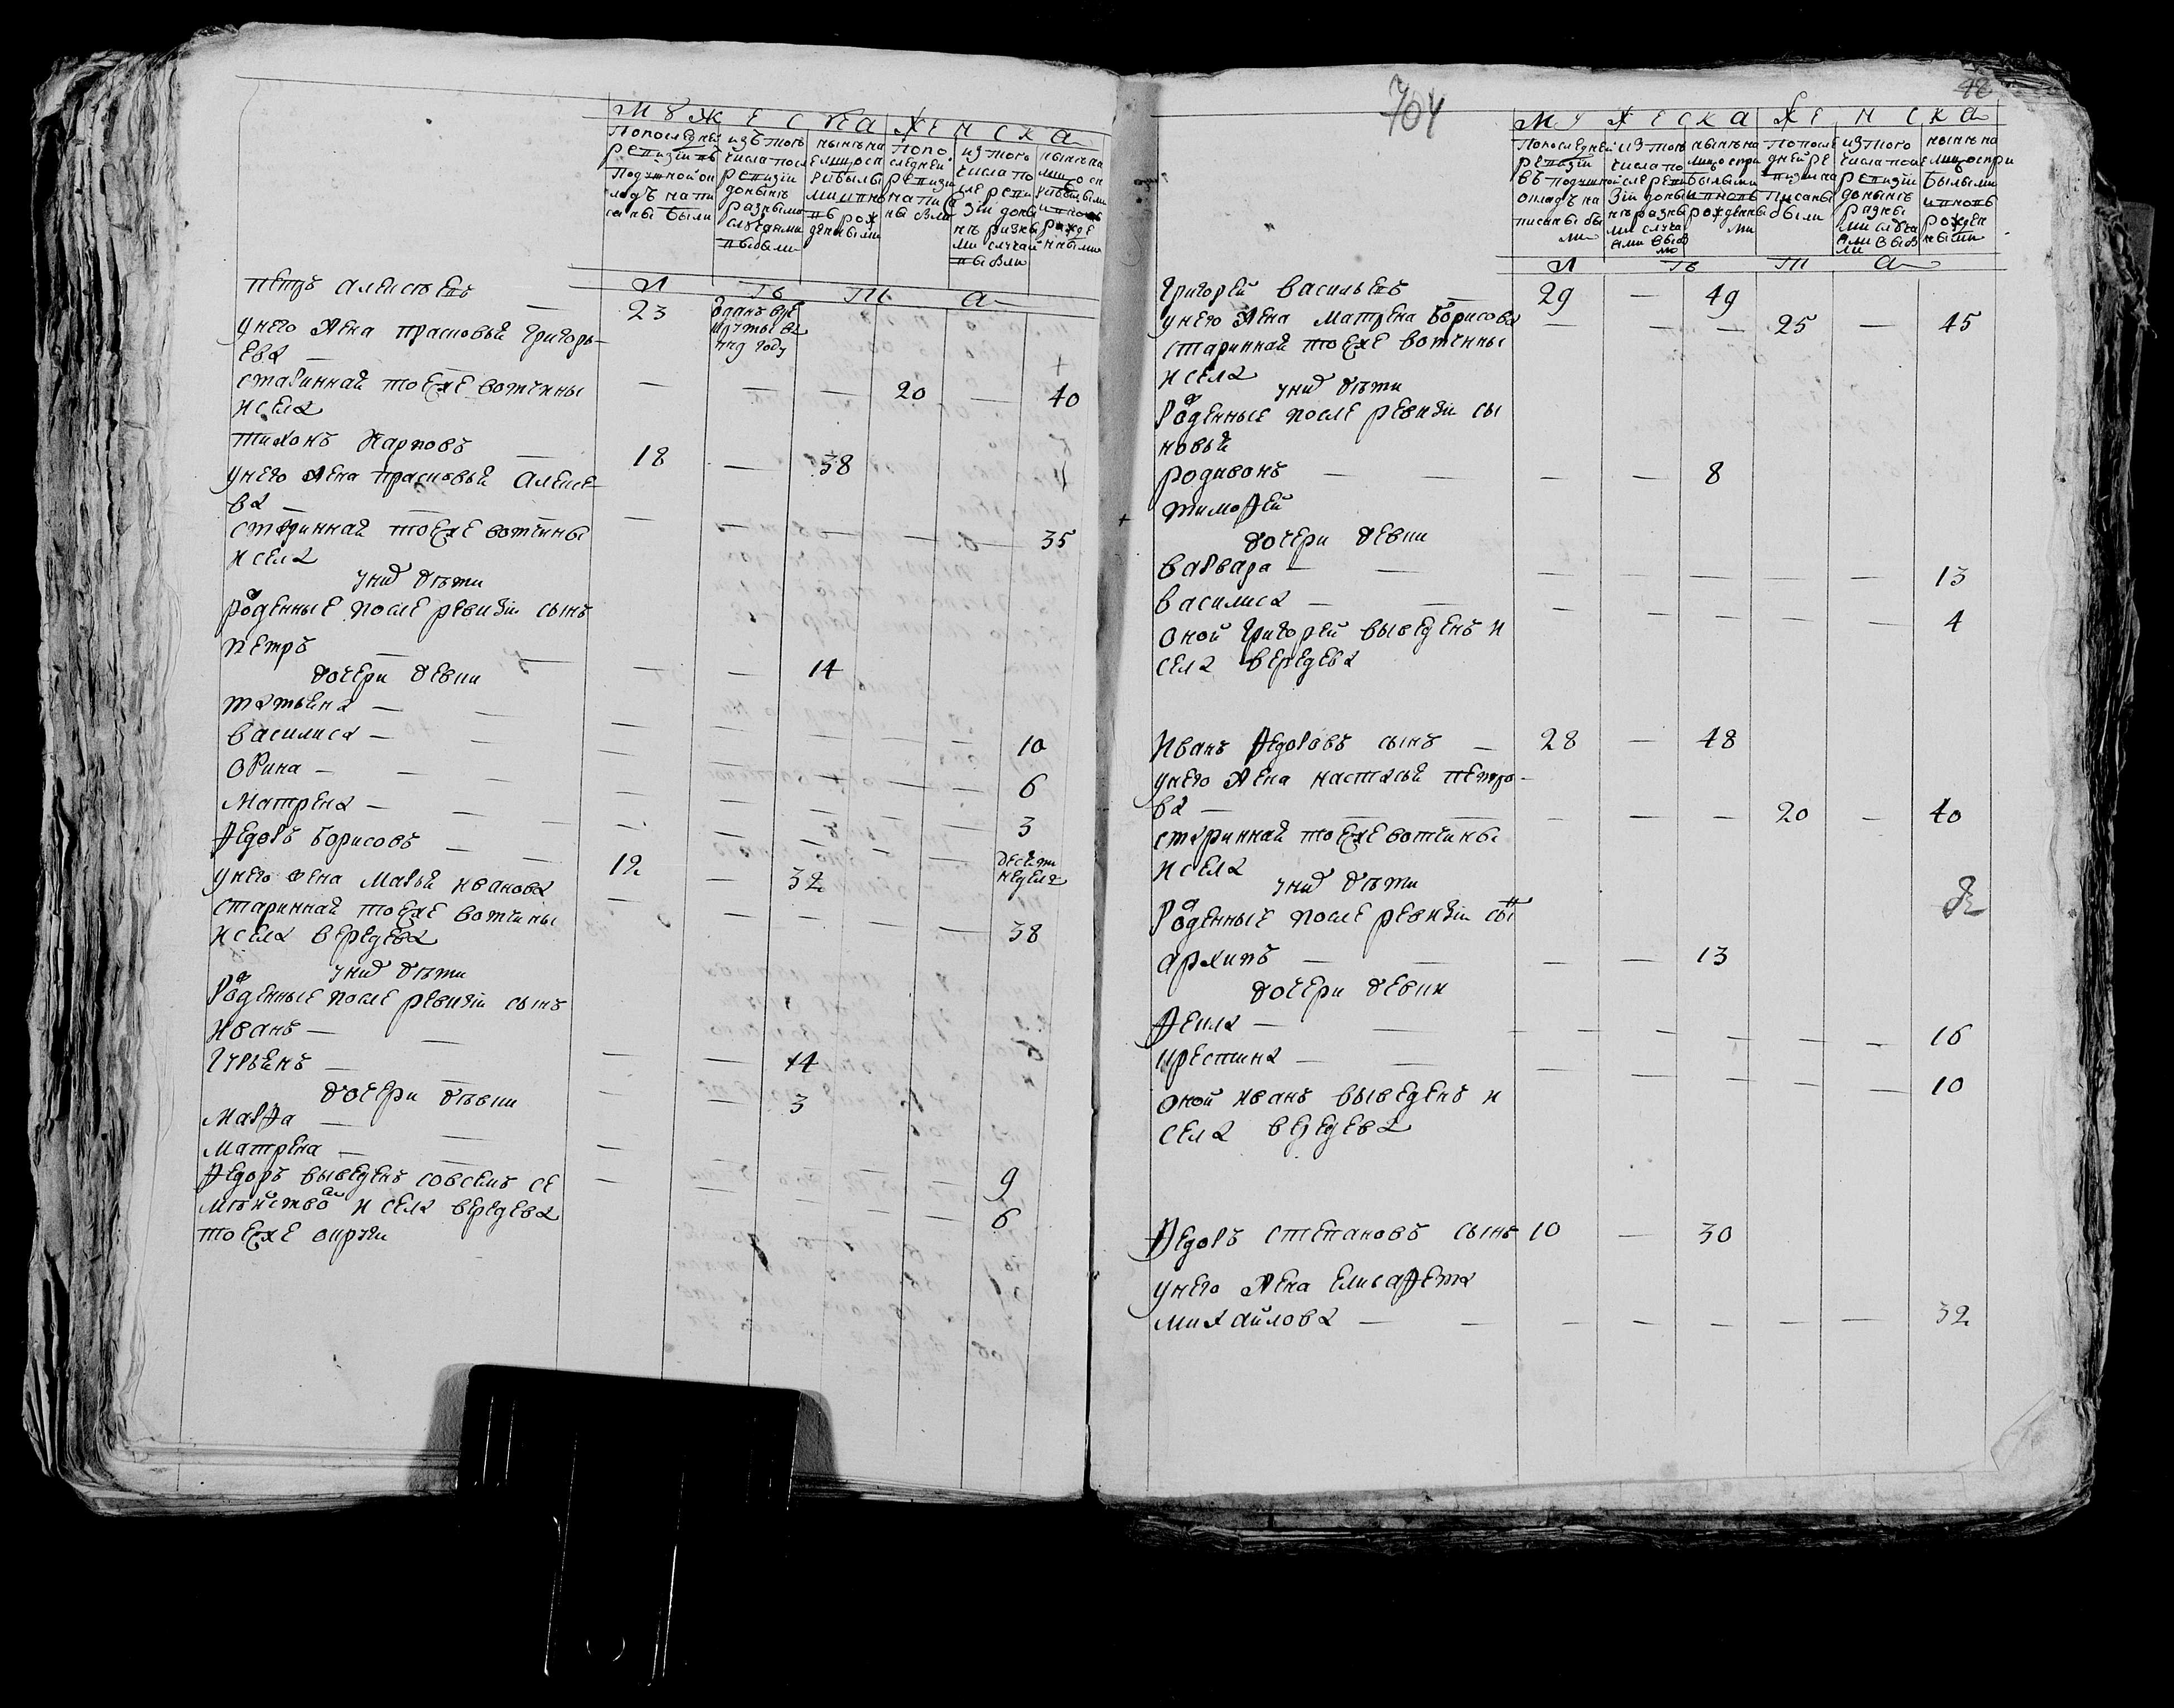 МУЖЕСКА ЖЕНСКА
По последней ревизии в подушной оклад написаны были
из того числа после ревизии до ныне разными случаями выбыли
ныне на лицо с прибылыми и вновь рожденными
по последней ревизии написаны были
из того числа после ревизии до ныне разными случаями выбыли
ныне на лицо с прибылыми и вновь рожденными
Л Ѣ Т А
Петръ Алексѣевъ — 23 в году
у него жена Прасковья Григорь
ева —
старинная тоеже вотчины — — — 20 — 40
и села
Тихонъ Карповъ — 18 — 38
у него жена Прасковья Алексе
ва —
старинная тоеже вотчины — — — — — 35
и села
у них дѣти
рожденные после ревизіи сынъ
Петръ — — — — 14
дочери девки
Татьяна — — — — — — — 10
Василиса — — — — — — — 6
Орина — — — — — — — 3
Матрена — — — — — — — десять неделя
Федоръ Борисовъ — — 12 — 32
у него жена Марья Иванова — — — — — 38
старинная тоеже вотчины
и села Вередева
у них дѣти
рожденные после ревизіи сынъ
Иванъ — — — — 14
Гурьянъ — — — — 3
дочери дѣвки
Марфа — — — — — — — 9
Матрена — — — — — — — 6
Федоръ выведенъ совсемъ се
мѣйством и села Вередева
тоеже округи
704
МУЖЕСКА ЖЕНСКА
По последней ревизии в подушной оклад написаны были
из того числа после ревизіи до ныне разными случаями выбыли
ныне на лицо с прибылыми и вновь рожденными
По последней ревизии написаны были
из того числа после ревизіи до ныне разными случаями выбыли
ныне на лицо с прибылыми и вновь рожденными
Л Ѣ Т А
Григорей Васильевъ — 29 — 49
у него жена Матрена Борисова — — — 25 — 45
старинная тоеже вотчины
и села
у них дѣти
рожденные после ревизіи сы
новья
Родивонъ — — — — 8
Тимофей
дочери девки
Варвара — — — — — — — 13
Василиса — — — — — — — 4
оной Григорей выведенъ и
села Вередева
Иванъ Федоровъ сынъ — 28 — 48
у него жена Настасья Петро
ва — — — — — 20 — 40
старинная тоеже вотчины
и села
у них дѣти
рожденные после ревизіи сын
Архипъ — — — — 13
дочери девки
Фекла — — — — — — — 16
Крестина — — — — — — — 10
оной Иванъ выведенъ и
села Вередева
Федоръ Степановъ сынъ 10 — 30
у него жена Елисафета
Михайлова — — — — — — — 32